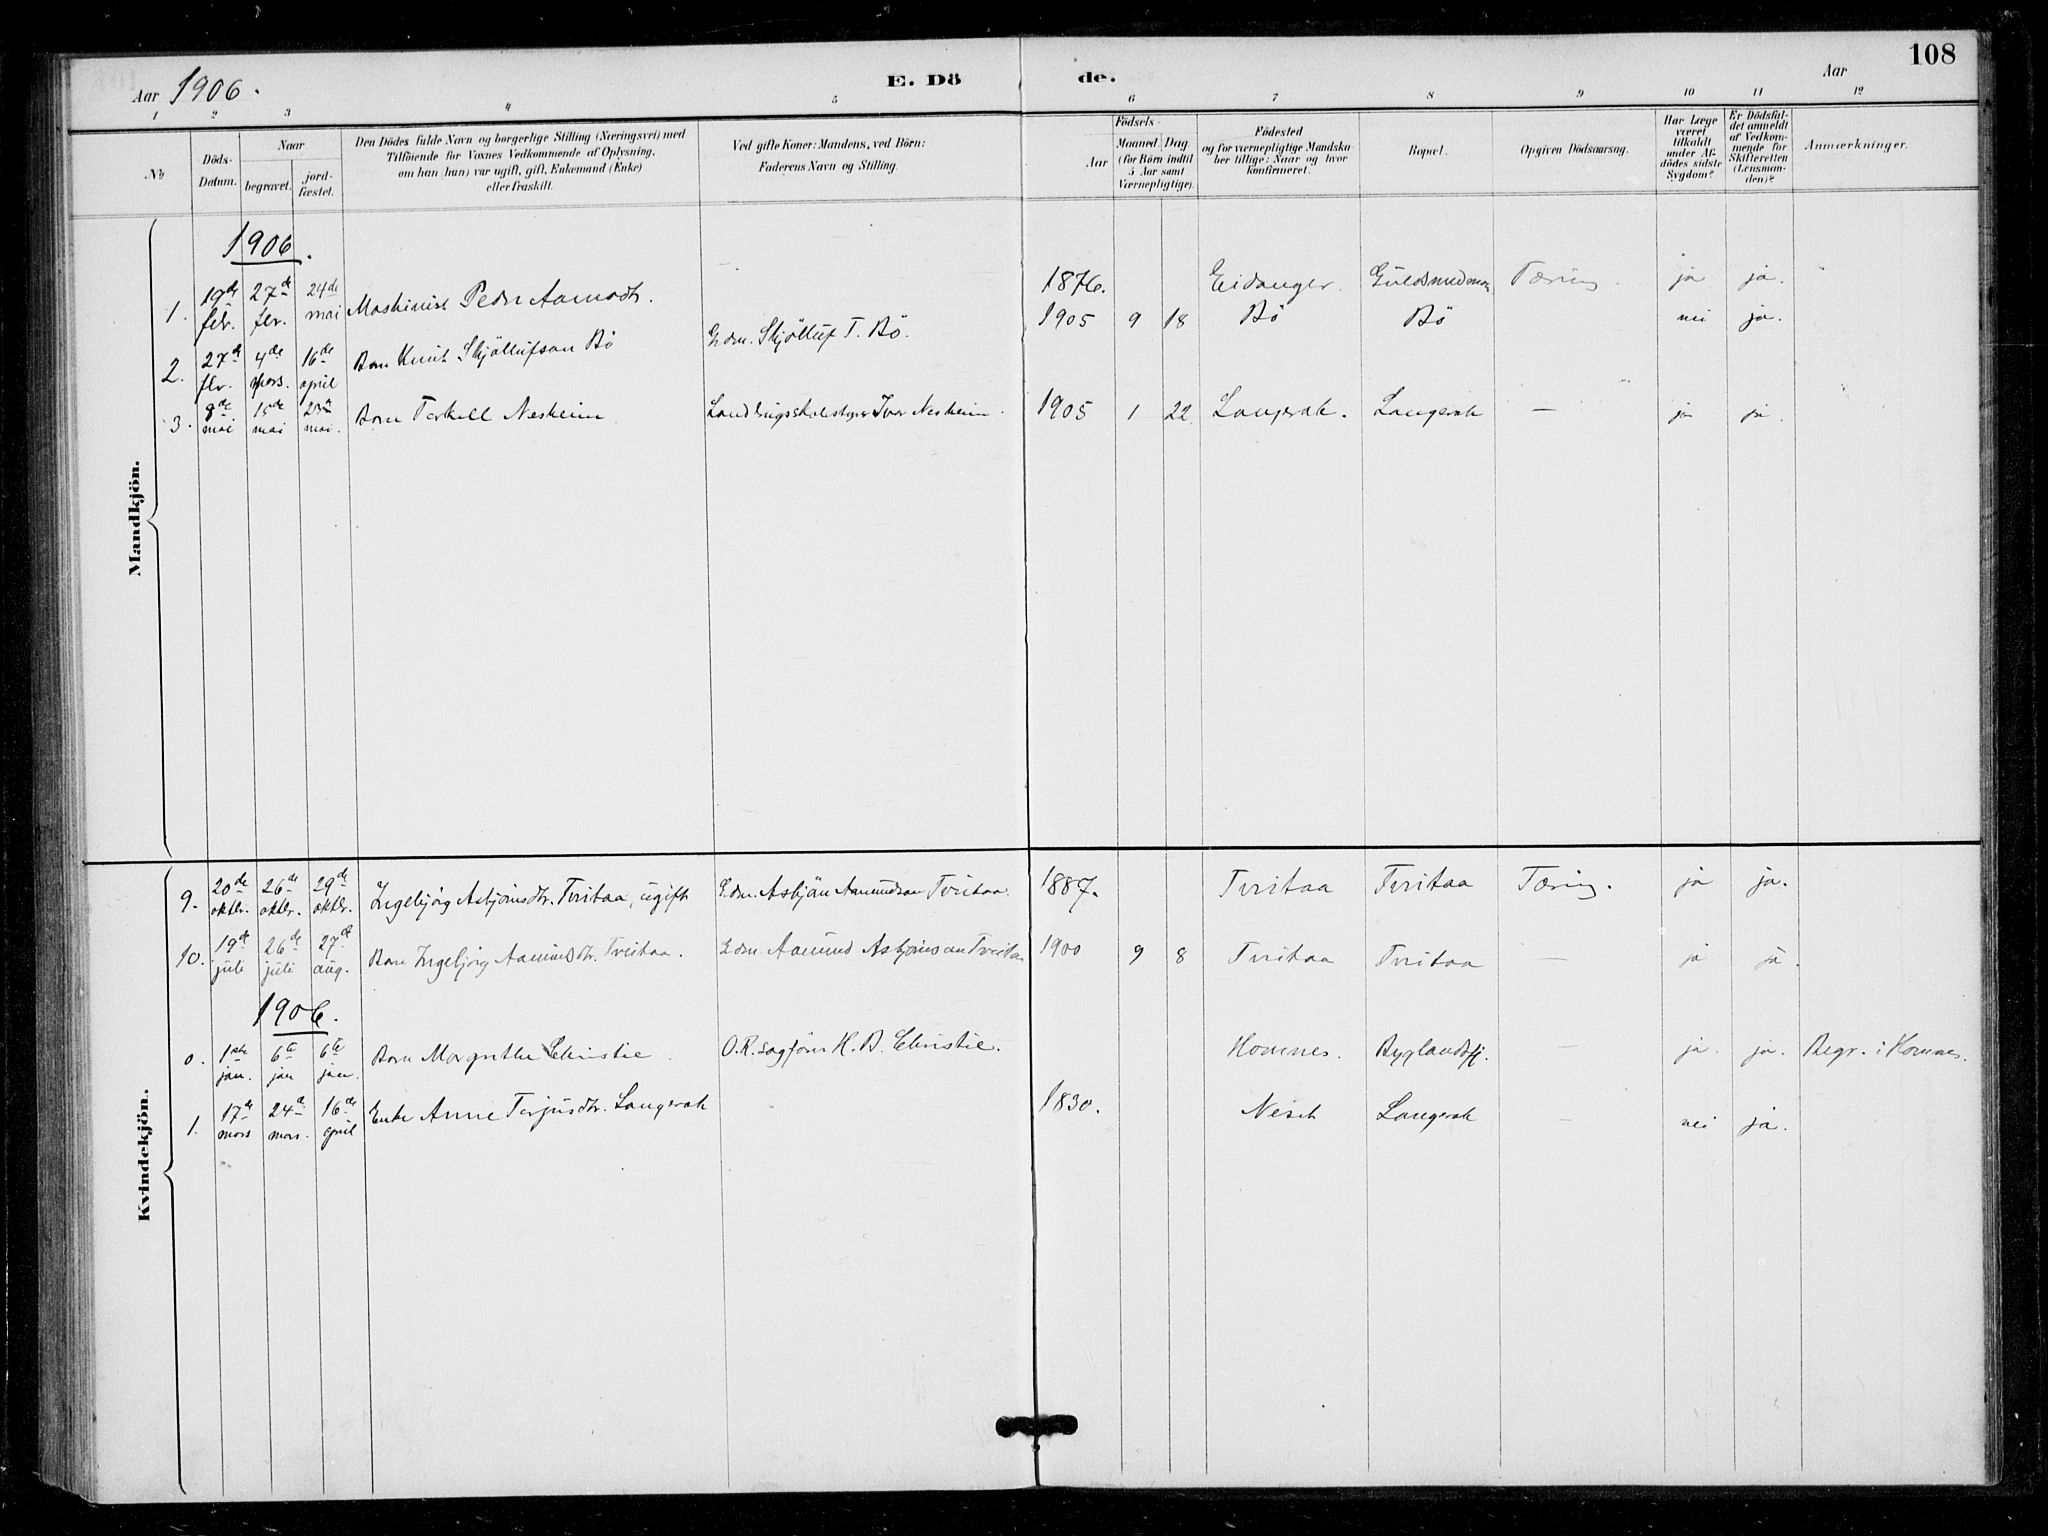 108
Aar 1906.
E. Dö de.
Aar
1 2 3 4 5 6 7 8 9 10 11 12
№
Döds-
Datum.
Naar
begravet.
jord-
fæstet.
Den Dödes fulde Navn og borgerlige Stilling (Næringsvei) med
Tilföiende for Voxnes Vedkommende af Oplysning,
om han (hun) var ugift, gift, Enkemand (Enke)
eller fraskilt.
Ved gifte Koner: Mandens, ved Börn:
Faderens Navn og Stilling.
Födsels-
Aar
Maaned Dag
(for Börn indtil
5 Aar samt
Værnepligtige).
Födested
og for værnepligtige Mandska-
ber tillige: Naar og hvor
konfirmeret.
Bopæl.
Opgiven Dödsaarsag.
Har Læge
været
tilkaldt
under Af-
dödes sidste
Sygdom?
Er Dödsfal-
det anmeldt
af Vedkom-
mende for
Skifteretten
(Lensman-
den)?
Anmærkninger.
Mandkjön.
1906.
1. 19de febr. 27de febr. 24de mai Maskinist Peder Aamodt. 1876. Eidanger. Tæring. ja ja.
2. 27de febr. 4de mars. 16de april Barn Knut Skjöllufsan Bö Gdm. Skjölluf T. Bö. 1905 9 18 Bö Bö nei ja.
3. 8de mai 15de mai mai. Barn Terkell Nesheim Landbrugsskolestyrer Iver Nesheim. 1905 1 22. Langerak. Langerak — ja ja.
Kvindekjön.
9. 20de oktbr. 26de oktbr. 29de oktbr. Ingebjørg Asbjørnsdtr. Tveitaa, ugift Gdm. Asbjön Aamundsan Tveitaa. 1887. Tveitaa Tveitaa Tæring. ja ja.
10. 19de juli 26de juli 27de aug. Barn Ingebjørg Aamundsdtr. Tveitaa. Gdm. Aamund Asbjönsan Tveitaa 1900 9 8 Tveitaa Tveitaa — ja ja.
1906.
0. 1ste jan. 6te jan 6te jan. Barn Margrethe Christie. O.R.sagförer H. B. Christie. Hornnes. Byglandsfj. — ja. ja. Begr. i Hornnes.
1. 17de mars 24de mars. 16de april Enke Anne Terjusdtr. Langerak 1830. Neset Langerak — nei ja.